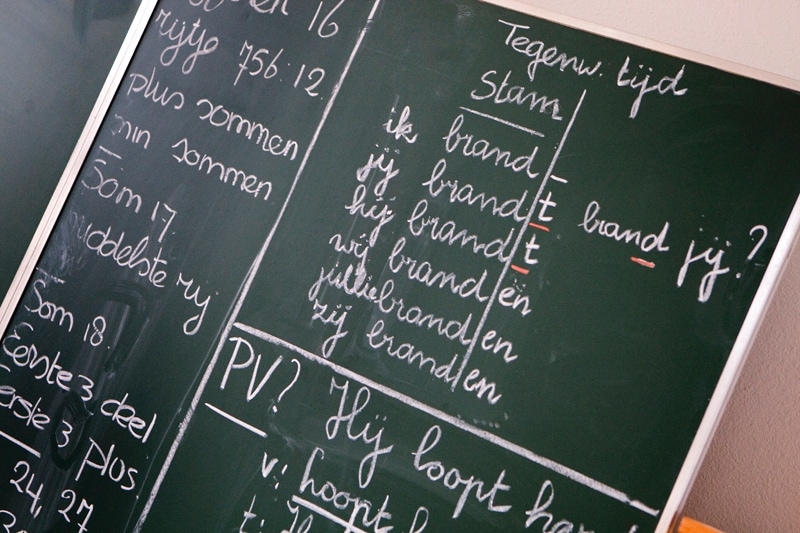 16
rijtje 756:12.
plus sommen
min sommen
Som 17.
middelste rij
Som 18.
Eerste 3 deel
Eerste 3 plus
24, 27
Tegenw. tijd
Stam
ik brand -
jij brand t brand jij?
hij brand t
wij brand en
jullie brand en
zij brand en
PV? Hij loopt
v.: loopt
t.: